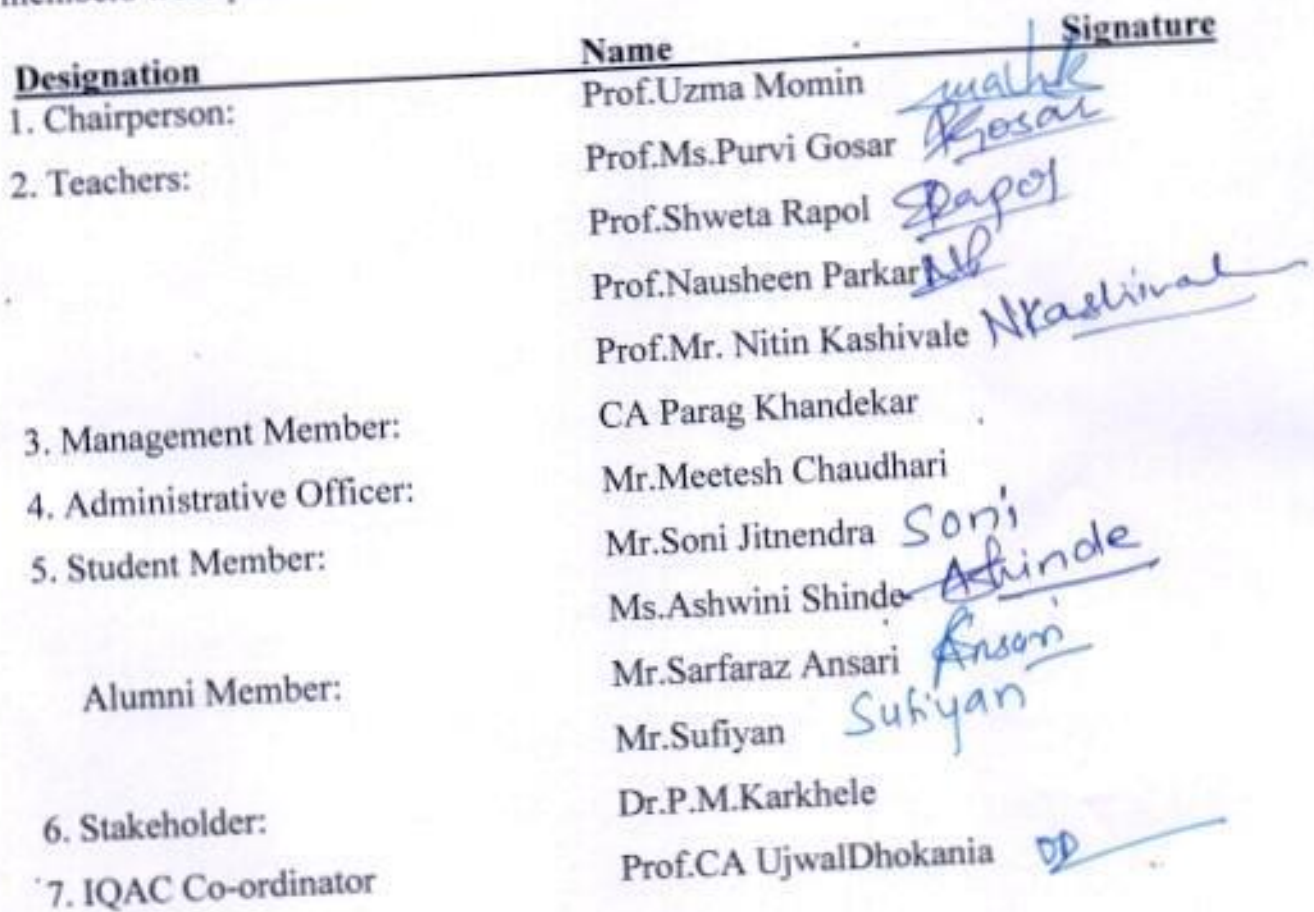 Designation Name Signature
1. Chairperson: Prof.Uzma Momin
2. Teachers: Prof.Ms.Purvi Gosar Pgosar
Prof.Shweta Rapol SRapol
Prof.Nausheen Parkar NP
Prof.Mr. Nitin Kashivale NKashival
3. Management Member: CA Parag Khandekar
4. Administrative Officer: Mr.Meetesh Chaudhari
5. Student Member: Mr.Soni Jitnendra Soni
Ms.Ashwini Shinde AShinde
Alumni Member: Mr.Sarfaraz Ansari Ansari
Mr.Sufiyan Sufiyan
6. Stakeholder: Dr.P.M.Karkhele
7. IQAC Co-ordinator Prof.CA UjwalDhokania